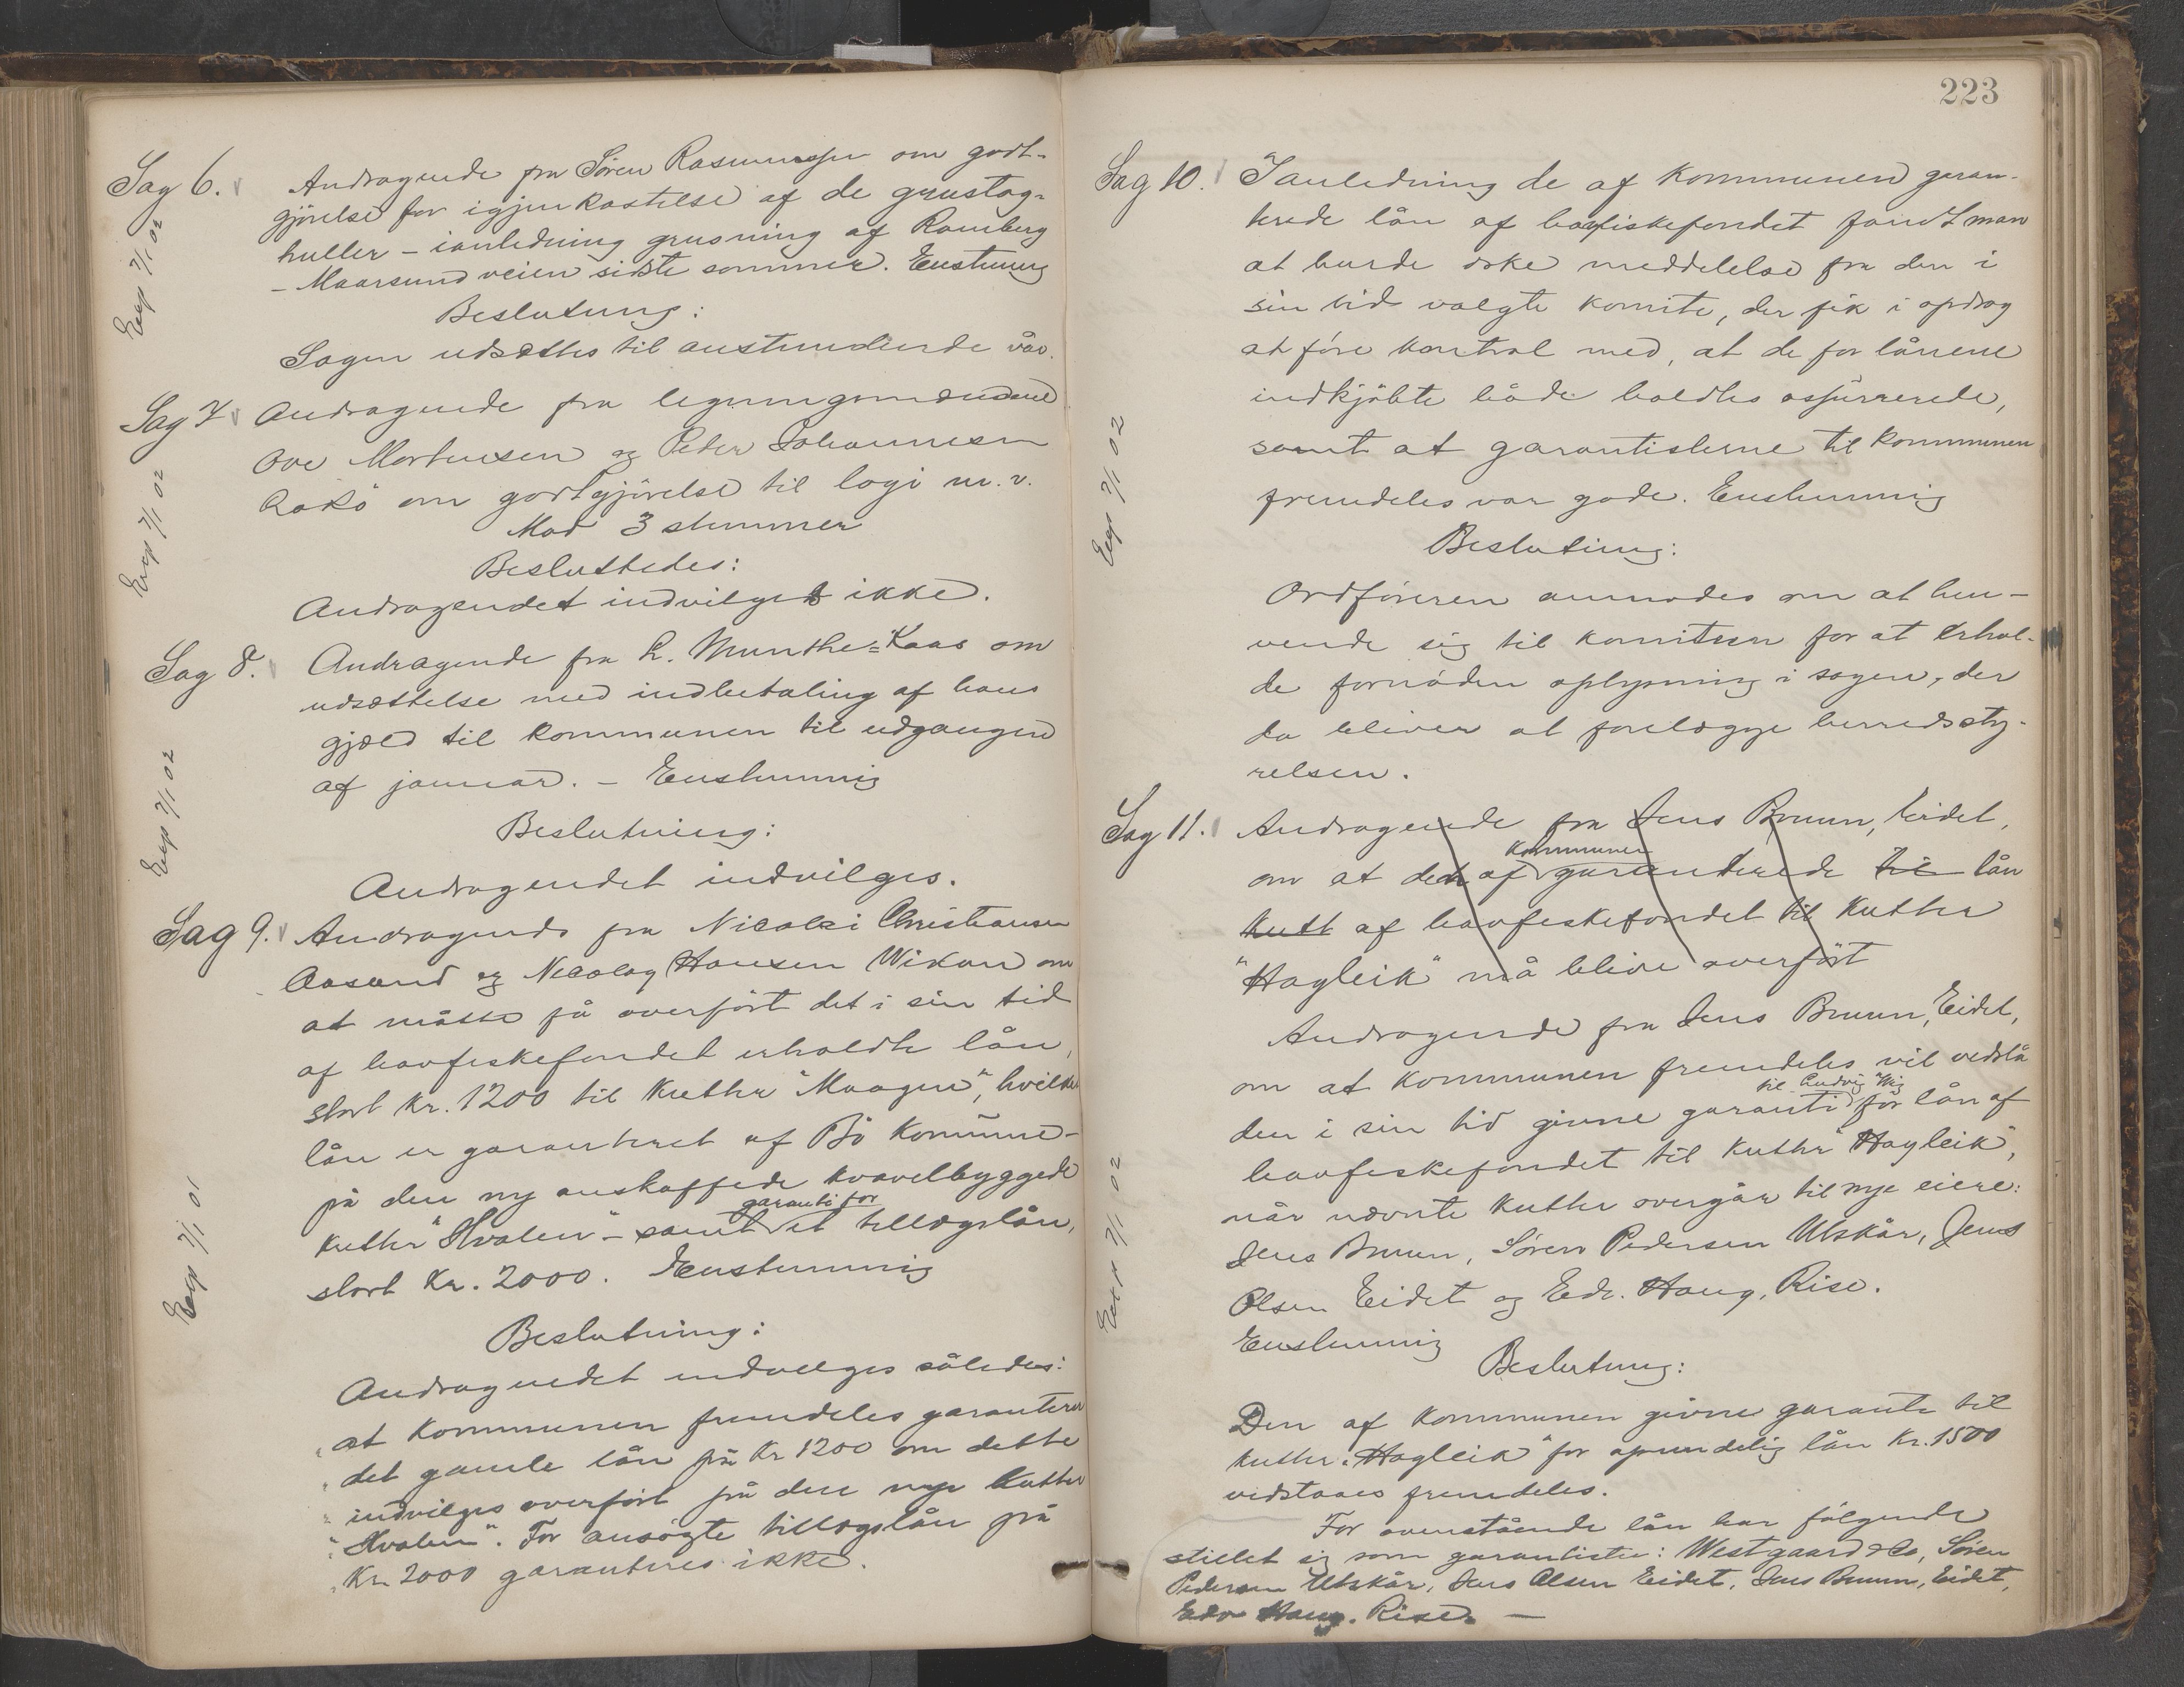 Sag 6. Andragende fra Sören Rasmussen om godt-
gjörelse for igjenkastelse af de grustag-
huller - ianledning grusning af Ramberg
- Maarsund veien sidste sommer. Enstemmig
Exp 7/1 02
Beslutning:
Sagen udsættes til anstundende vår.
Sag 7 Andragende fra legningsmændene
Ove Mortensen og Peter Johannesen
om godtgjörelse til logi m.v.
Exp 7/1 02
Mod 3 stemmer
Besluttedes:
Andragendet indvilges ikke.
Sag 8. Andragende fra L. Munthe=Kaas om
udsættelse med indbetaling af hans
gjæld til kommunen til udgangen
af januar. - Enstemmig
Exp 7/1 02
Beslutning:
Andragendet indvilges.
Sag 9. Andragende fra Nicolai Christiansen
Aasand og Nicolay Hansen Wikan om
at måtte få overfört det i sin tid
af havfiskefondet erholdte lån,
stort kr. 1200 til kutter "Maagen", hvilket
lån er garanteret af Bö kommune -
på den ny anskaffede kravelbyggede
garanti for
kutter "Hvalen" - samt et tillægslån,
stort kr. 2000. Enstemmig
Exp 7/1 01
Beslutning:
Andragendet indvilges således:
"at kommunen fremdeles garanterer
"det gamle lån på kr 1200 om dette
"indvilges overfört på den nye kutter
"Hvalen". For ansögte tillægslån på
"Kr 2000 garanteres ikke.
223
Sag 10. Ianledning de af kommunen garan-
terede lån af havfiskefondet fandt man
at burde æske meddelelse fra den i
sin tid valgte komite, der fik i opdrag
at före kontrol med, at de for lånene
indkjöbte både holdtes assurerede,
samt at garantisterne til kommunen
fremdeles var gode. Enstemmig
Exp 7/1 02
Beslutning:
Ordföreren anmodes om at hen-
vende sig til komiteen for at erhol-
de fornöden oplysning i sagen, der
da bliver at forelægge herredssty-
relsen.
Sag 11. Andragende fra Jens Bruun, Eidet,
kommunen
om at det af garanterede til lån
kutt af havfiskefondet til kutter
"Hagleik" må blive overfört
Andragende fra Jens Bruun, Eidet,
om at kommunen fremdeles vil vedstå
til Ludvig Wig
den i sin tid givne garanti for lån af
havfiskefondet til kutter "Hagleik",
når nævnte kutter overgår til nye eiere:
Jens Bruun, Sören Pedersen Utskår, Jens
Olsen Eidet og Edv. Haug, Rise.
Exp 7/1 02
Enstemmig
Beslutning:
Den af kommunen givne garanti til
kutter "Hagleik" for oprindelig lån kr. 1500
vedstaaes fremdeles.
For ovenstående lån har fölgende
stillet sig som garantister: Westgaard & Co, Sören
Pedersen Utskår, Jens Olsen Eidet, Jens Bruun, Eidet,
Edv Haug. Rise. -